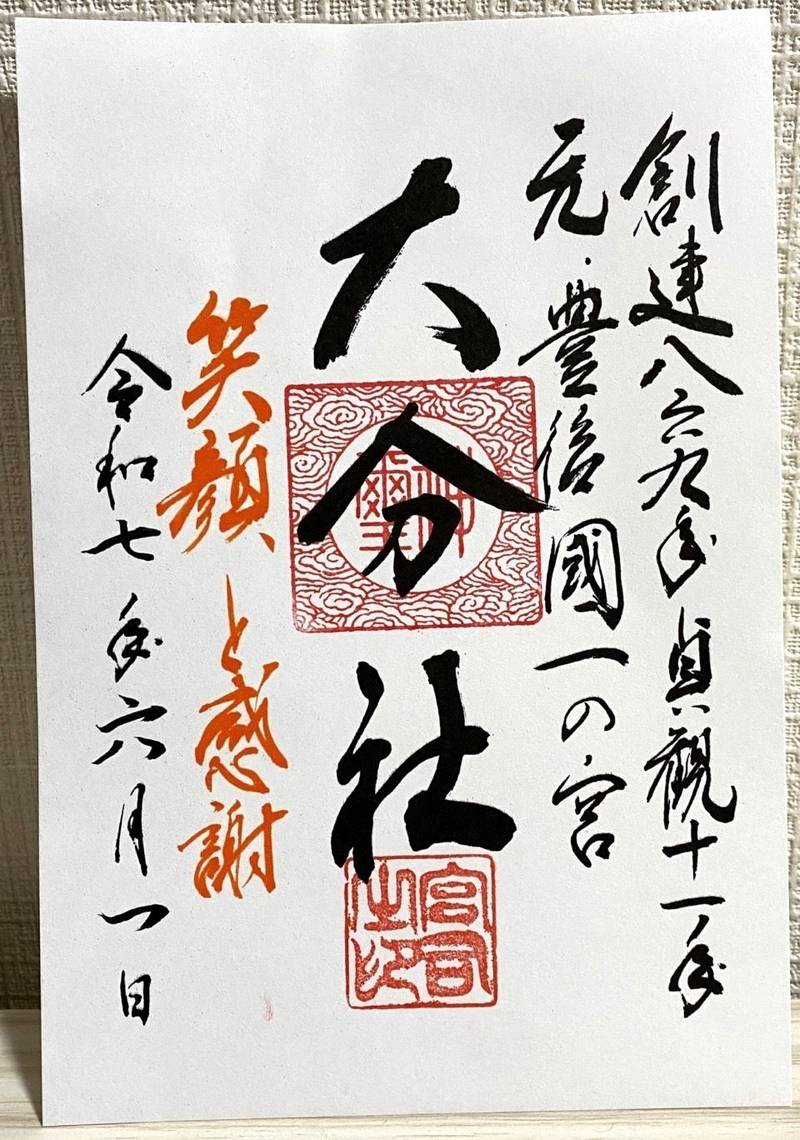 創建八六九年貞觀十一年
元・豊後國一の宮
大分社
宮司之印
笑顔と感謝
令和七年六月一日